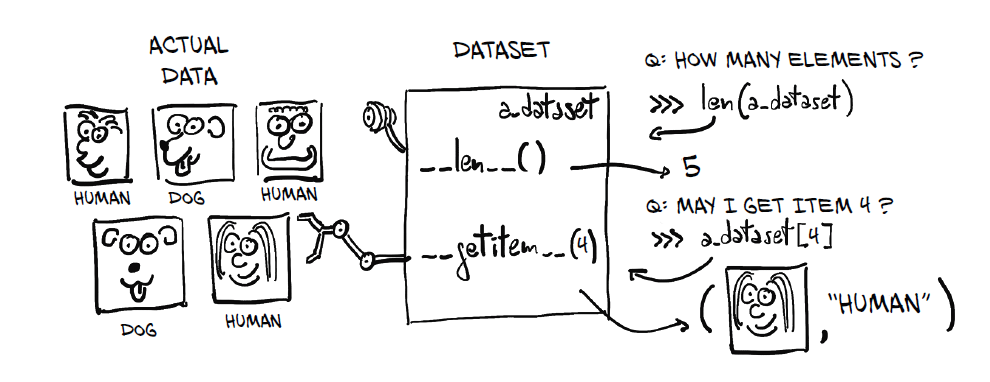 ACTUAL
DATA
HUMAN
DOG
HUMAN
DOG
HUMAN
DATASET
a_dataset
__len__()
__getitem__(4)
Q: HOW MANY ELEMENTS?
>>> len(a_dataset)
5
Q: MAY I GET ITEM 4?
>>> a_dataset[4]
( , "HUMAN" )